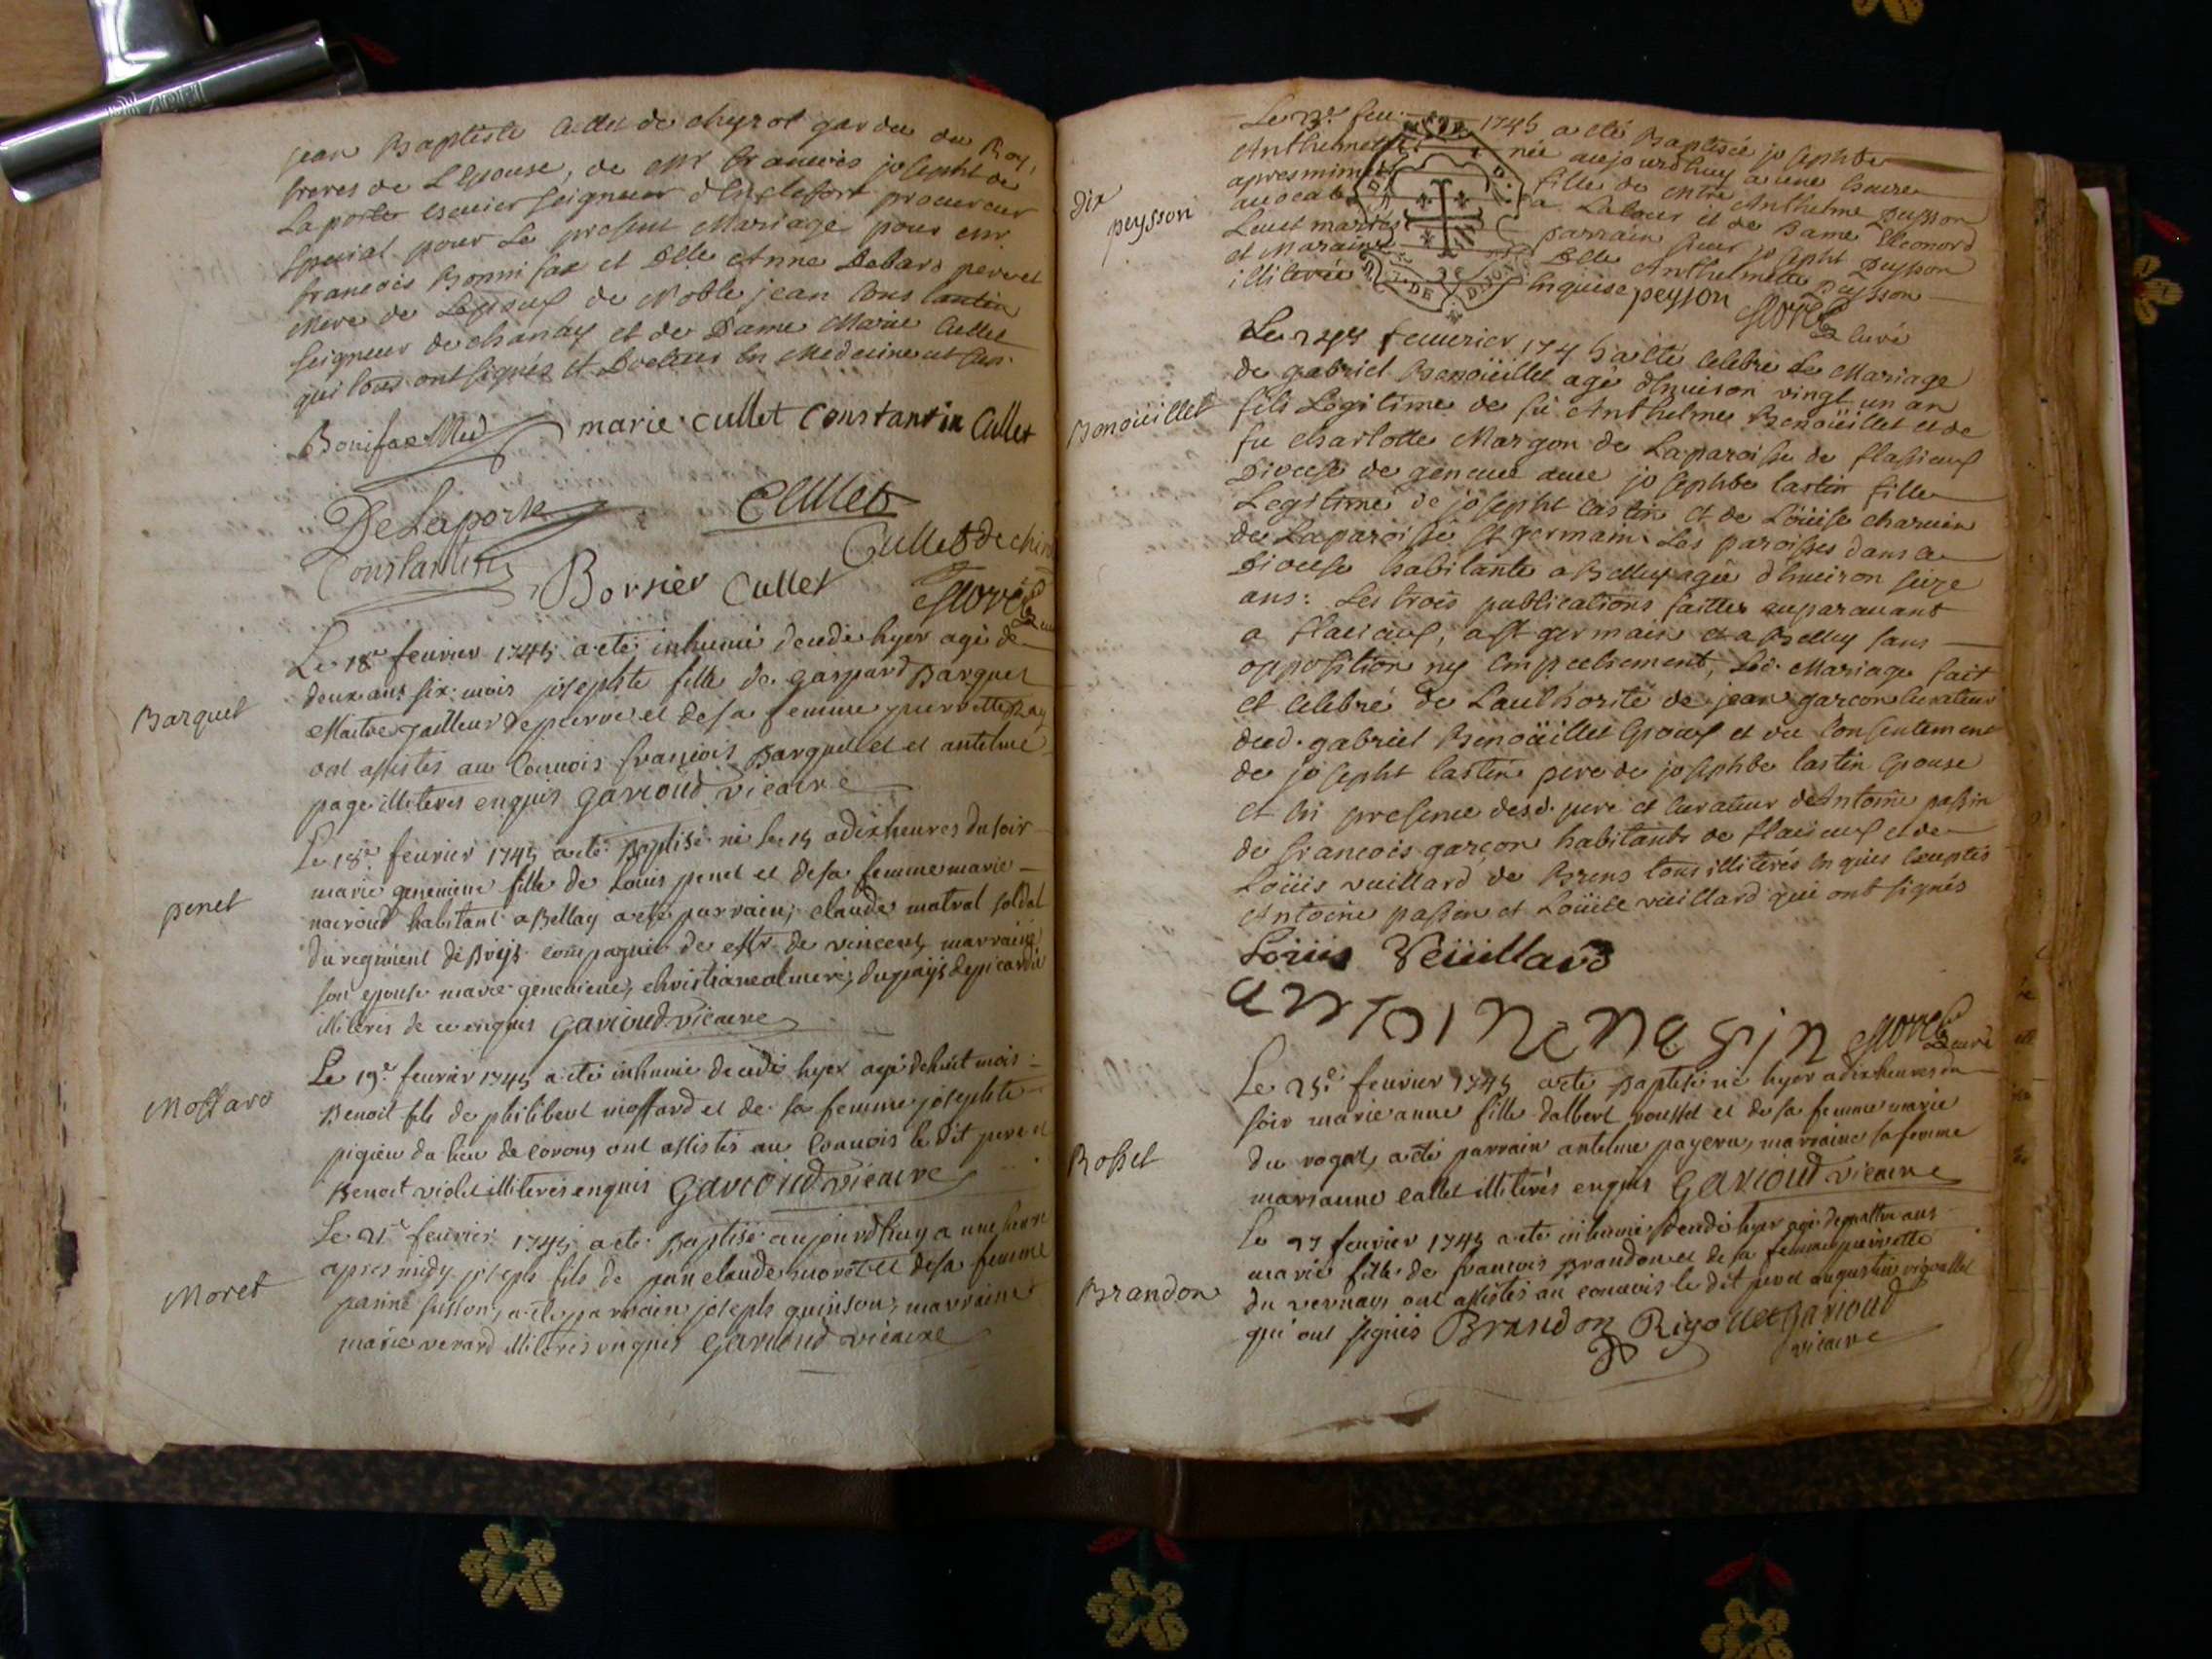 jean Baptiste Cullet de chyrot garde du Roy,
freres de L'Epouse, de Mr francois josepht de
Laporte escuier seigneur d'Anglefort procureur
special pour Le present Mariage pour mr.
francois Bonnifax et Dlle Anne Debard pere et
Mere de Lepoux de Noble jean Constantin
seigneur de chanay et de Dame Marie Cullet
qui tous ont signés et Docteur en Medecine
Bonifax Med marie cullet Constantin Cullet
DeLaporte Cullet
Constantin Bornier Cullet Cullet de
Barquet
Le 18e fevrier 1745 a eté inhumé decedé hyer agé de
deux ans six mois josephte fille de gaspard Barquet
Maitre tailleur de pierre et de sa femme pierrette
ont assistés au Convois françois Barquet et antelme
page illiterés enquis Gavioud vicaire
penet
Le 18e fevrier 1745 a eté Baptisé né le 15 a dix heures du soir
marie genevieve fille de Louis penet et de sa femme marie
habitant a Bellay a eté parrain, claude matral soldat
du regiment de Brys compagnie de Mr de vincent, marraine
son epouse marie genevieve, du pays de picardie
illiteris de ce enquis Gavioud vicaire
Moffard
Le 19e fevrier 1745 a eté inhumé decedé hyer agé de huit mois
Benoit fils de philibert moffard et de sa femme josephte
pigieu du lieu de corons ont assistés au Convois le dit pere et
Benoit violet illiterés enquis Gavioud vicaire
Moret
Le 21e fevrier 1745 a eté Baptisé aujourdhuy a une heure
apres midy joseph fils de jean claude moret et de sa femme
a eté parrain joseph quinson, marraine
marie verard illiterés enquis Gavioud vicaire
Dix
peysson
Le 23e feu. 1745 a eté Baptisée josephte
Anthelmette née aujourdhuy a une heure
apres minuit fille de mtre Anthelme Peysson
avocat a La Cour et de Dame Eleonord
Louet mariés parrain sieur josepht Peysson
et Maraine Dlle Anthelmette Peysson
illiterée enquise peysson
curé
Benoüillet
Le 24e fevurier 1745 a eté Celebré Le Mariage
de gabriel Benoüillet agé d'Environ vingt un an
fils Legitime de fû Anthelme Benoüillet et de
fu charlotte Margon de La paroisse de flaxieux
Diocese de geneve avec josephte Castin fille
Legitime de josepht Castin et de Loüise charvin
de La paroisse st germain Les paroisses dans ce
Diocese habitante a Belley agée d'Environ seize
ans: Les trois publications faittes auparavant
a flaxieux, a st germain et a Belley sans
opposition ny empechement, Led. Mariage fait
et Celebré de L'authorité de jean garcon Curateur
dud. gabriel Benoüillet Epoux et du Consentement
de josepht Castin pere de josephte Castin Epouse
et En presence desd. pere et Curateur d'Antoine passin
de francois garçon habitants de flaxieux et de
Loüis vuillard de Brens tous illiterés enquis Exceptés
Antoine passin et Loüise vuillard qui ont signés
Loüis Veüillard
antoine pasin curé
Rosset
Le 25e fevrier 1745 a eté Baptisé né hyer a dix heures du
soir marie anne fille d'albert rousset et de sa femme marie
du rogat, a eté parrain antelme payern, marraine sa femme
marianne callet illiterés enquis Gavioud vicaire
Brandon
Le 27 fevrier 1745 a eté inhumé decedé hyer agé de quattre ans
marie fille de francois Brandon et de sa femme pierrette
du vernay, ont assistés au convois le dit pere et augustin rigollet
qui ont signés Brandon Rigollet Gavioud
vicaire